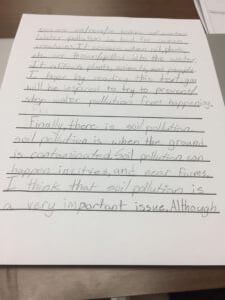 water pollution is bad for ocean
creatures. It happens when oil, plastic
I hope by reading this text you
will be inspired to try to prevent/
stop water pollution from happening.
Finally there is soil pollution.
soil pollution is when the ground
is contaminated. Soil pollution can
happen in cities, and near farms.
I think that soil pollution is
a very important issue. Although